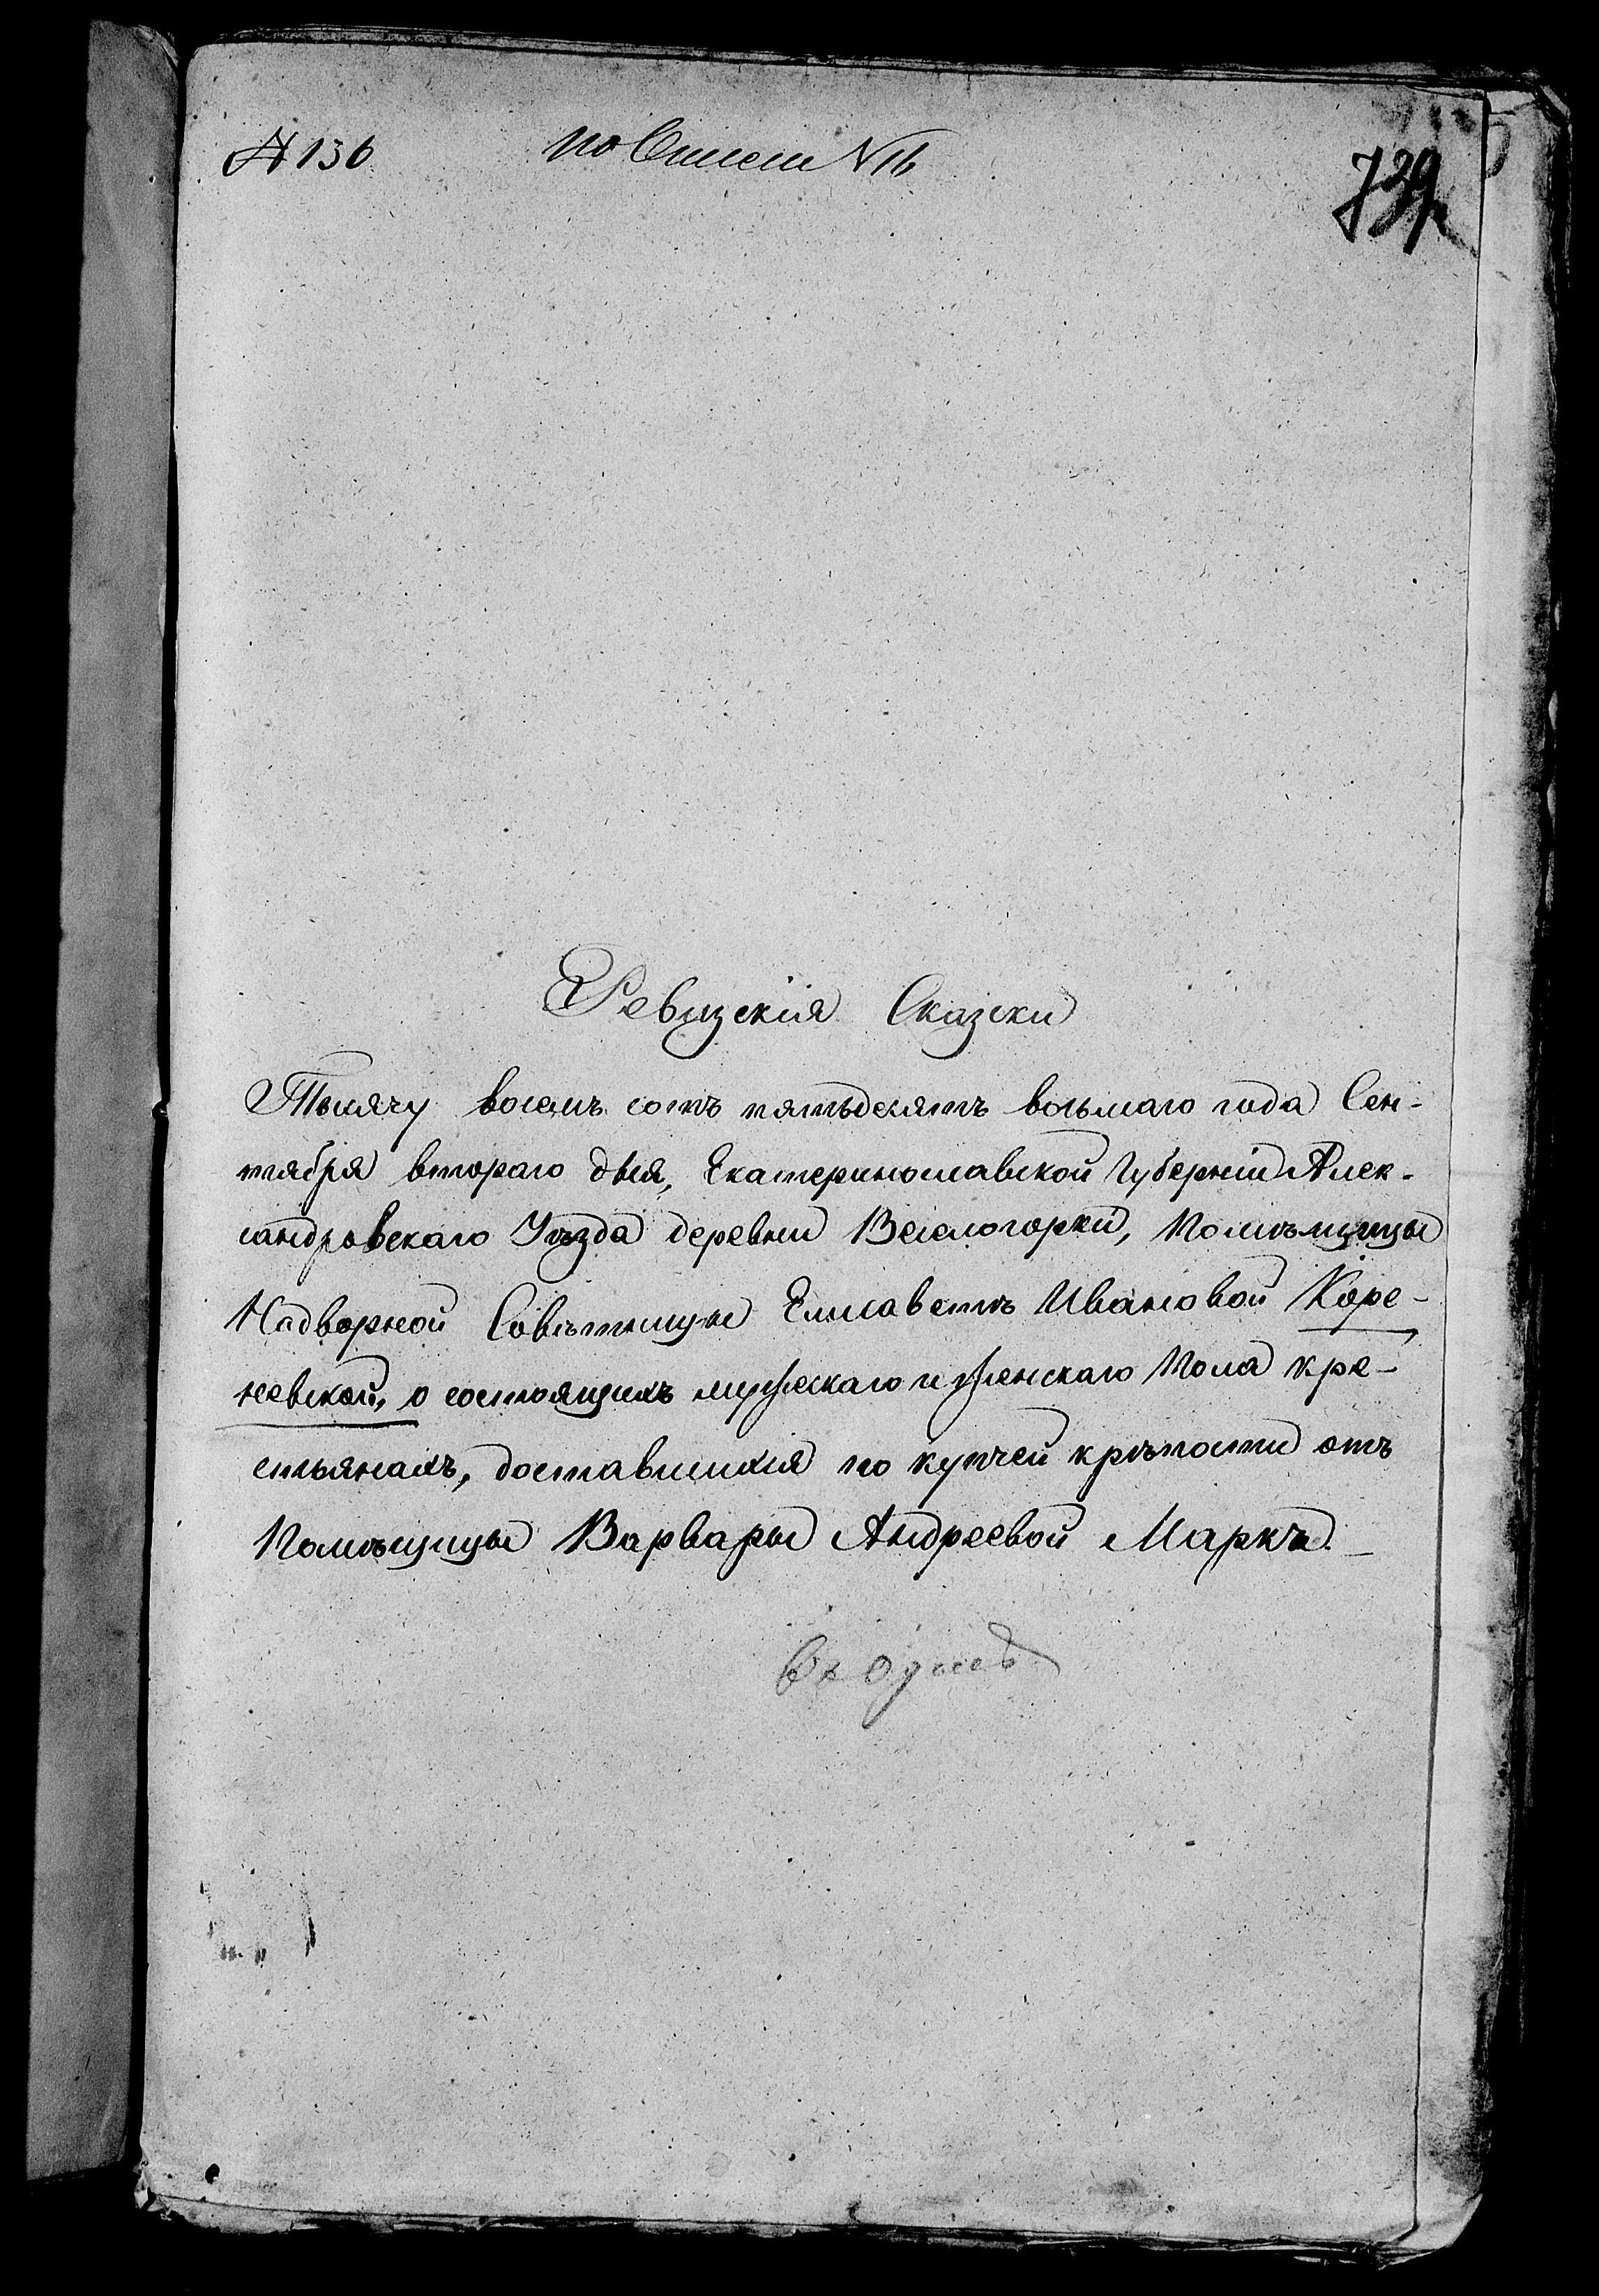 № 136
по Описи № 16
739
Ревизскія Сказки
Тысячу восемь сотъ пятьдесятъ восьмаго года Сен-
тября втораго дня, Екатеринославской Губерніи Алек-
сандровскаго Уѣзда деревни Веселогорки, Помѣщицы
Надворной Совѣтницы Елисаветѣ Ивановой Коре-
невской, о состоящихъ мужескаго и женскаго Пола кре-
стьянахъ, доставшихся по купчей крѣпости отъ
Помѣщицы Варвары Андреевой Маркъ.